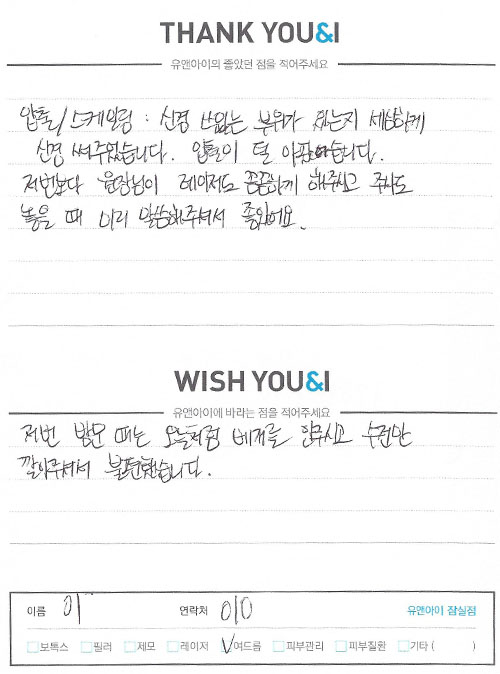 THANK YOU&I
유앤아이의 좋았던 점을 적어주세요
압출/스케일링 : 신경 쓰있는 부위가 있는지 세심하게
신경 써주었습니다. 압출이 덜 아팠습니다.
저번보다 원장님이 레이저도 꼼꼼하게 해주시고 주사도
놓을 때 미리 말씀해주셔서 좋았어요.
WISH YOU&I
유앤아이에 바라는 점을 적어주세요
저번 방문 때는 오늘처럼 베개를 안주시고 수건만
깔아주셔서 불편했습니다.
이름 이 연락처 010 유앤아이 잠실점
보톡스 필러 제모 레이저 여드름 피부관리 피부질환 기타 ( )